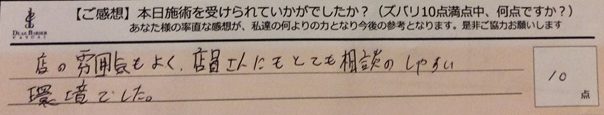 【ご感想】本日施術を受けられていかがでしたか？（ズバリ10点満点中、何点ですか？）
あなた様の率直な感想が、私達の何よりの力となり今後の参考となります。是非ご協力お願いします
DEAR BARBER
店の雰囲気もよく、店員さんにもとても相談のしやすい
環境でした。
10
点